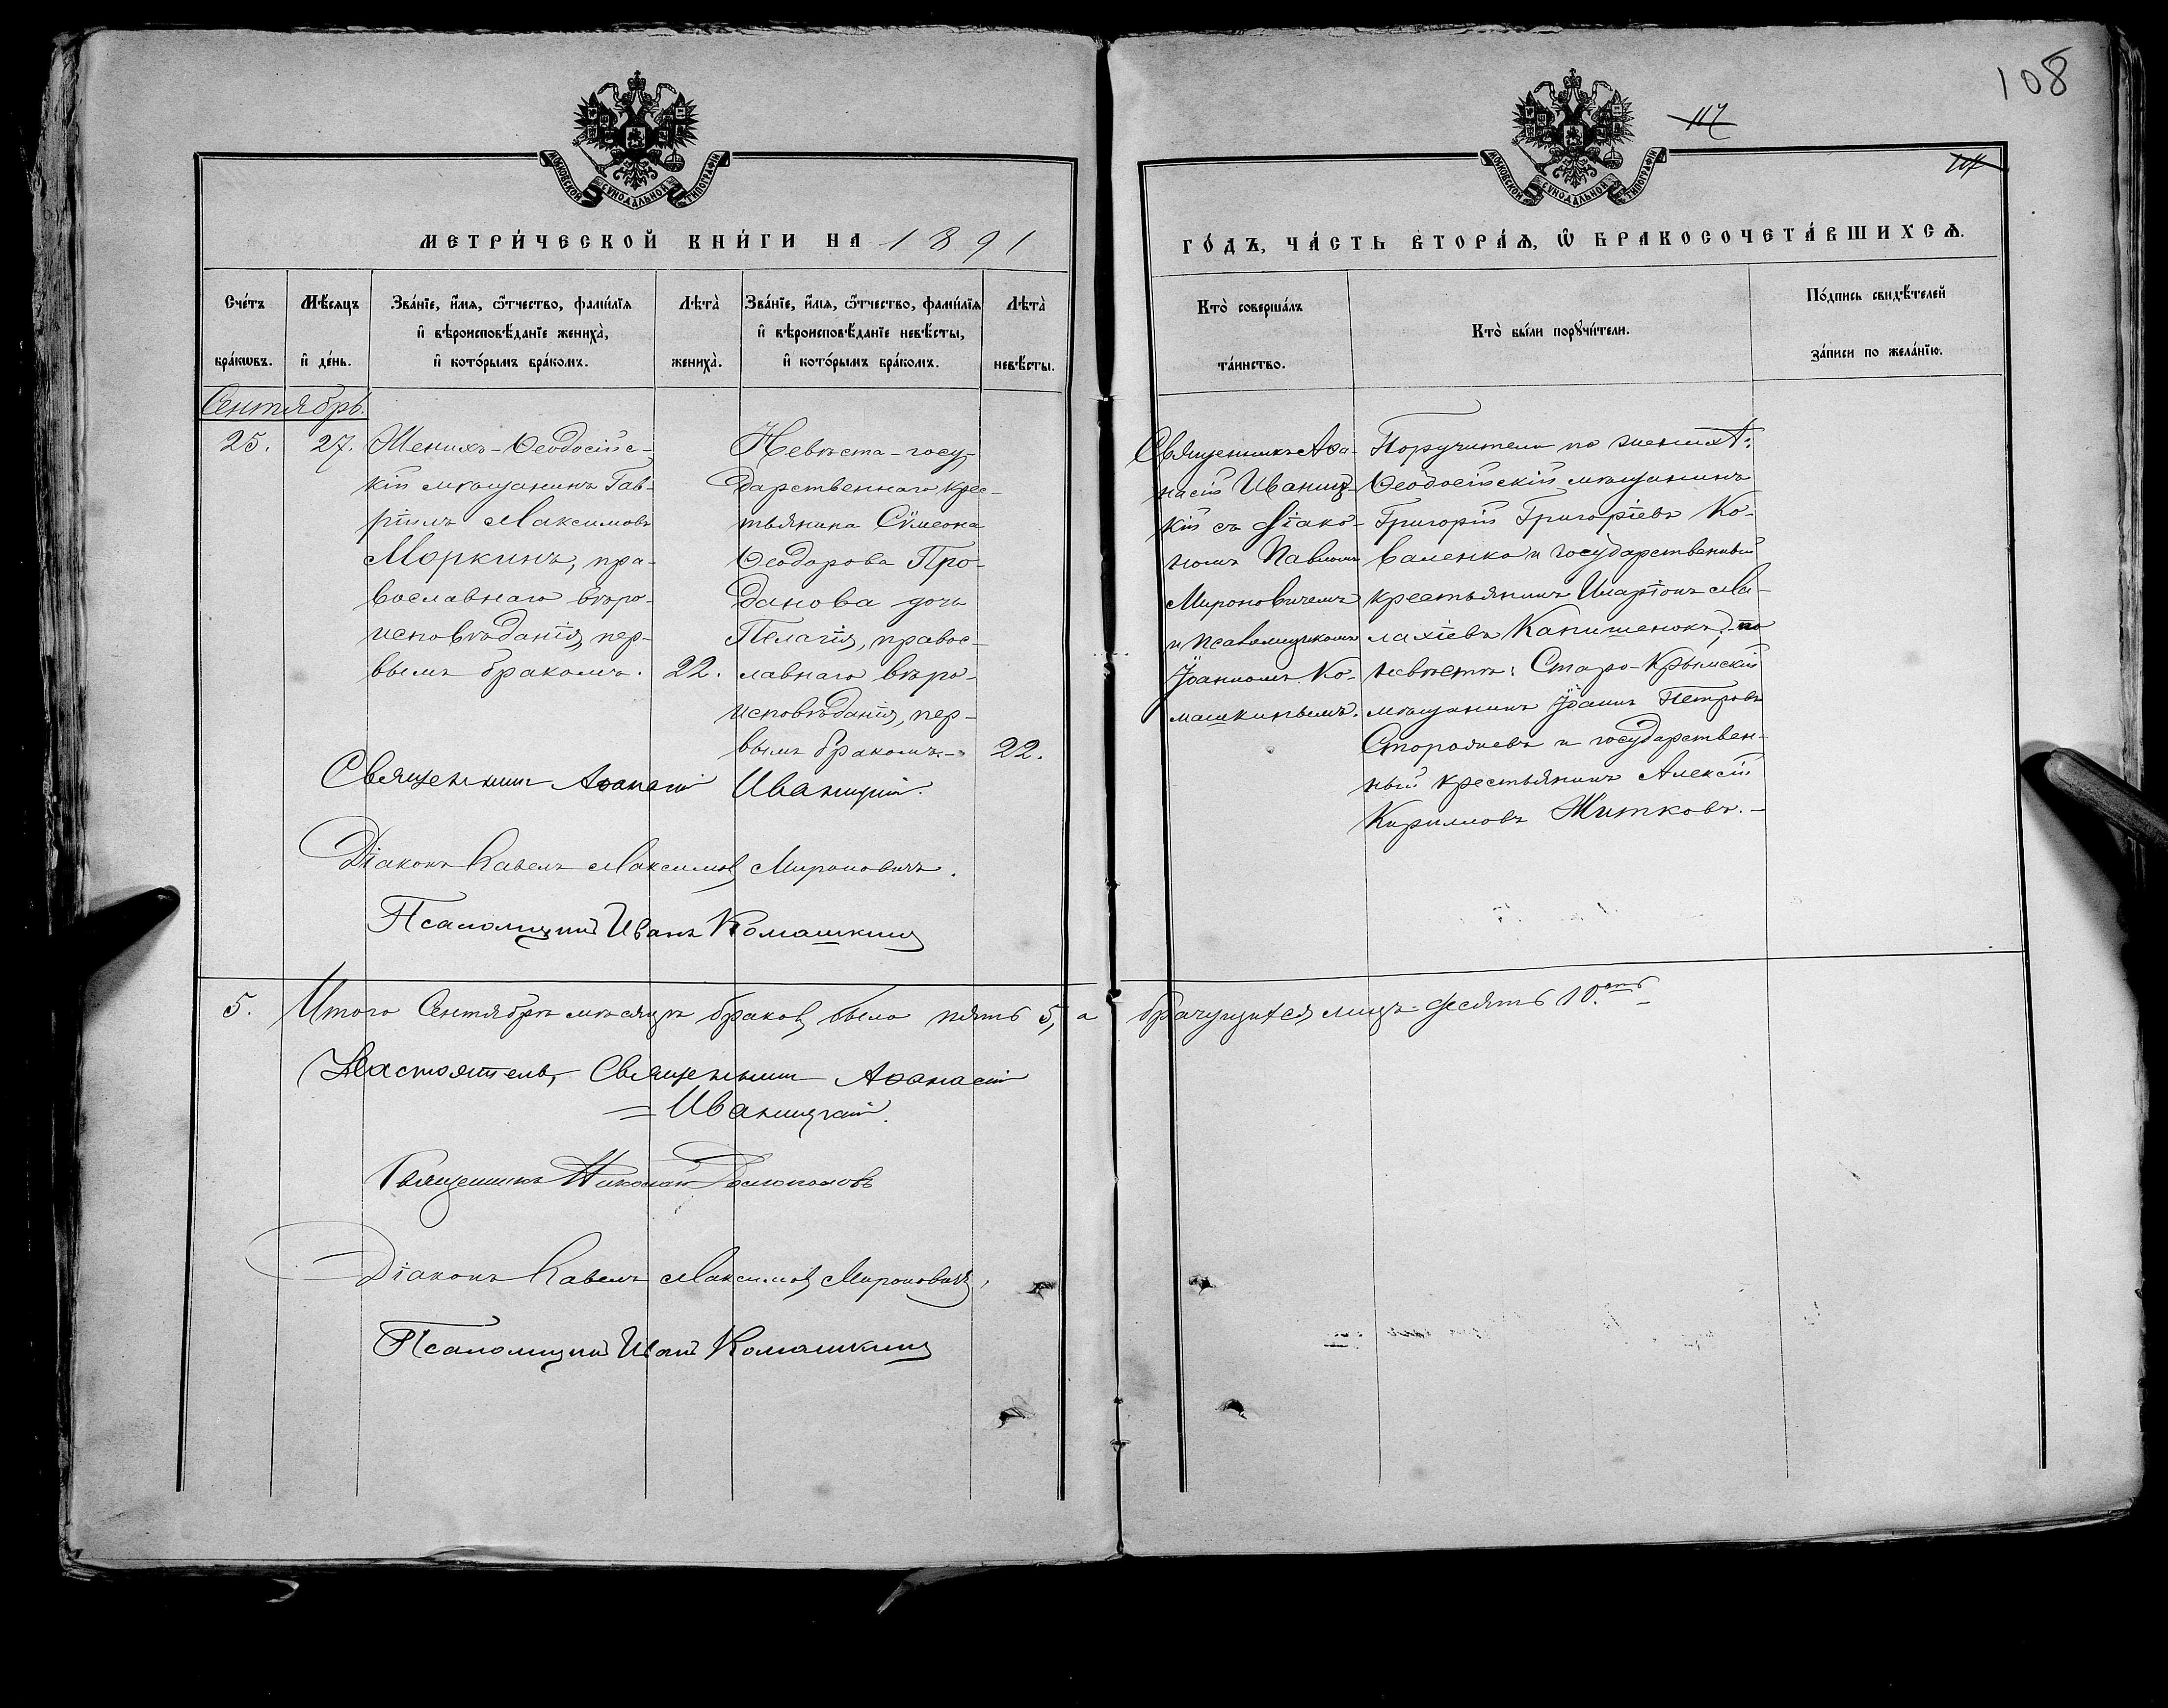 108
117
МОСКОВСКОЙ СѴНОДАЛЬНОЙ ТИПОГРАФІИ
МОСКОВСКОЙ СѴНОДАЛЬНОЙ ТИПОГРАФІИ
МЕТРИ́ЧЕСКОЙ КНИ́ГИ НА 1891
ГО́ДЪ, ЧА́СТЬ ВТОРА́Ѧ, Ѡ҆ БРАКОСОЧЕТА́ВШИХСѦ.
Сче́тъ бра́кѡвъ.
Мѣ́сяцъ и҆ де́нь.
Зва́нїе, и҆́мя, ѻ҆́тчество, фами́лїя
и҆ вѣроисповѣ́данїе жениха̀,
и҆ кото́рымъ бра́комъ.
Лѣта̀ жениха̀.
Зва́нїе, и҆́мя, ѻ҆́тчество, фами́лїя
и҆ вѣроисповѣ́данїе невѣ́сты,
и҆ кото́рымъ бра́комъ.
Лѣта̀ невѣ́сты.
Кто̀ соверша́лъ
та́инство.
Кто̀ бы́ли порꙋчи́тели.
По́дпись свидѣ́телей
за́писи по жела́нїю.
Сентябрь.
25.
27.
Женихъ - Ѳеодосійс-
кій мѣщанинъ Гав-
ріилъ Максимовъ
Моркинъ, пра-
вославнаго вѣро-
исповѣданія, пер-
вымъ бракомъ.
22.
Невѣста - госу-
дарственнаго крес-
тьянина Сѵмеона
Ѳеодорова Про-
данова дочь
Пелагія, правос-
лавнаго вѣро-
исповѣданія, пер-
вымъ бракомъ.-
22.
Священникъ Аѳа-
насій Иваниц-
кій съ діако-
номъ Павломъ
Мироновичемъ
и псаломщикомъ
Іоанномъ Ко-
машкинымъ.
Поручители по женихѣ:
Ѳеодосійскій мѣщанинъ
Григорій Григоріевъ Ко-
валенко и государственный
крестьянинъ Иларіонъ Ма-
лахіевъ Капишенокъ; по
невѣстѣ: Старо-Крымскій
мѣщанинъ Іоаннъ Петровъ
и государствен-
ный крестьянинъ Алексій
Кирилловъ Житковъ.-
Священникъ Аѳанасій Иваницкій.
Діаконъ Павелъ Максимовъ Мироновичъ.
Псаломщикъ Иванъ Комашкинъ
5. Итого Сентябрѣ мѣсяцѣ браковъ было пять 5, а брачущихся лицъ десять 10.ать
Настоятель, Священникъ Аѳанасій
= Иваницкій.
Священникъ Николай
Діаконъ Павелъ Максимовъ Мироновичъ.
Псаломщикъ Иванъ Комашкинъ